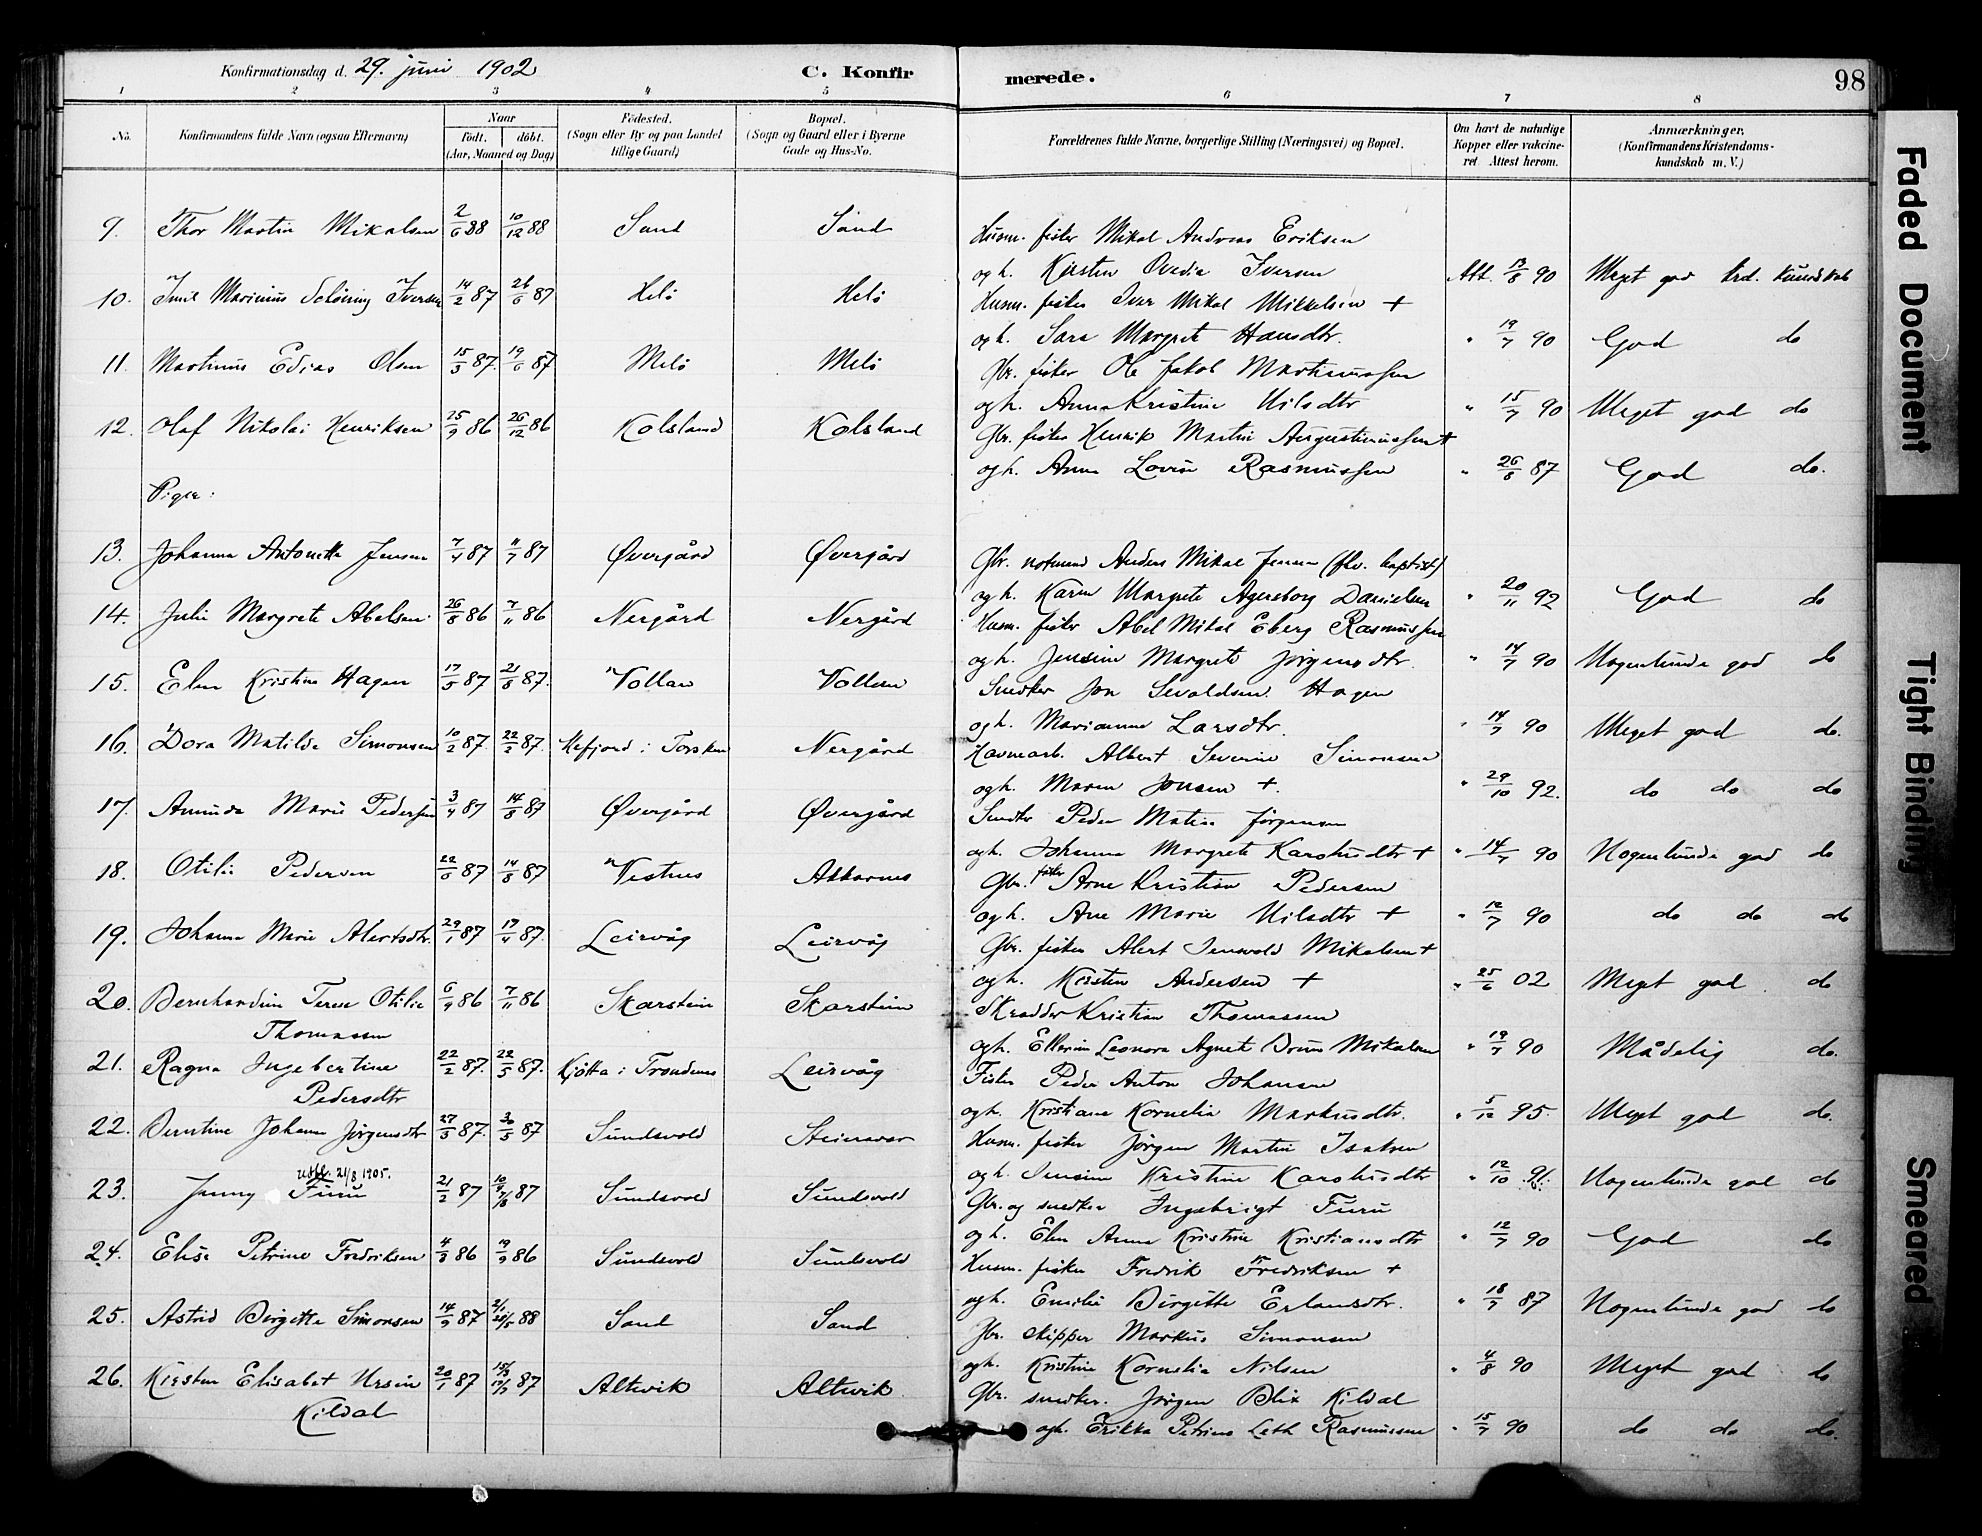 Konfirmationsdag d. 29. juni 1902
C. Konfirmerede.
98
1 2 3 4 5 6 7 8
No. Konfirmandens fulde Navn (ogsaa Efternavn) Naar født. døbt. (Aar, Maaned og Dag) Fødested. (Sogn eller By og paa Landet tillige Gaard) Bopæl. (Sogn og Gaard eller i Byerne Gade og Hus-No. Forældrenes fulde Navne, borgerlige Stilling (Næringsvei) og Bopæl. Om havt de naturlige Kopper eller vakcineret. Attest herom. Anmærkninger. (Konfirmandens Kristendomskundskab m. V.)
9. Thor Martin Mikalsen 2/6 88 10/12 88 Sand Sand Husm. fisker Mikal Andreas Eriksen
og h. Kirsten Ovedia Iversen Att. 13/8 90 Meget god krd. kundskab
10. Emil Marinius Schøning Iversen 14/2 87 26/6 87 Helø Helø Husm. fisker Iver Mikal Mikkelsen +
og h. Sara Margrete Hansdtr. " 19/7 90 God do
11. Martinus Edias Olsen 15/5 87. 19/6 87. Melø Melø Gbr. fisker Ole Jakob Martinussen
og h. Anna Kristine Nilsdtr " 15/7 90 Meget god do
12. Olaf Nikolai Henriksen 25/9 86 26/12 86 Kolsland Kolsland Gbr. fisker Henrik Martin Augustinussen +
og h. Anna Lovise Rasmussen " 26/8 87 God do.
Piger:
13. Johanna Antonette Jensen 7/4 87 11/7 87 Øvergård Øvergård Gbr. notmand Anders Mikal Jensen (fhv. baptist)
og h. Karen Margrete Agersborg Danielsen " 20/11 92 God do
14. Julie Margrete Abelsen 26/8 86 7/11 86 Nergård Nergård Husm. fisker Abel Mikal Eberg Rasmussen
og h. Jensine Margrete Jørgensdtr. " 14/7 90 Nogenlunde god do
15. Elen Kristine Hagen 17/5 87 21/8 87. Vollan Vollan Snedker Jon Sevaldsen Hagen
og h. Marianne Larsdtr. " 14/7 90 Meget god do.
16. Dora Matilde Simonsen 10/2 87. 22/5 87. Mefjord i Torsken Nergård Havnearb. Albert Severin Simonsen
og h. Maren Jonsen +. " 29/10 92. do do do
17. Amunda Marie Pedersen 3/4 87 14/8 87 Øvergård Øvergård Snedker Peder Matias Jørgensen
og h. Johanna Margrete Karoliusdtr + " 14/7 90 Nogenlunde god do
18. Otilie Pedersen 22/6 87 14/8 87 Vestnes Akkarnes Gbr. fisker Arne Kristian Pedersen
og h. Ane Marie Nilsdtr + " 12/7 90 do do do
19. Johanna Marie Alertsdtr. 29/1 87 17/4 87. Leirvåg Leirvåg Gbr. fisker Alert Mikalsen +
og h. Kirsten Andersen + " 25/6 02 Meget god do
20. Bernhardine Terese Otilie Thomassen 6/9 86 7/11 86 Skarstein Skarstein Skrædder Kristian Thomassen
og h. Ellerine Leonora Agnete Bruun Mikalsen " 19/7 90 Mådelig do.
21. Ragna Ingebertine Pedersdtr 22/2 87. 22/5 87. Kjøtta i Trondenes Leirvåg Fisker Peder Anton Johansen
og h. Kristiane Kornelia Markusdtr. " 5/12 95. Meget god do.
22. Berntine Johanna Jørgensdtr 27/3 87. 30/5 87 Sundsvold Steinavær Husm. fisker Jørgen Martin Isaksen
og h. Jensine Kristine Karoliusdtr " 12/10 91. Nogenlunde god do
23. Jenny Furu 21/2 87 10/4 87 Sundsvold Sundsvold Gbr. og snedker Ingebrigt Furu
Utfl. 21/8 1905.
og h. Elen Anna Kristine Kristiansdtr " 12/7 90 God do
24. Elisa Petrine Fredriksen 4/3 86 19/9 86 Sundsvold Sundsvold Husm. fisker Fredrik Fredriksen +
og h. Emilie Birgitte Erlandsdtr. " 18/7 87 Nogenlunde god do
25. Astrid Birgitte Simonsen 14/9 87 2/1 21/5 88 Sand Sand Gbr. skipper Markus Simonsen
og h. Kristine Kornelia Nilsen " 4/8 90 Meget god do
26. Kirsten Elisabet Ursin Kildal 20/1 87 15/3 87 Altevik Altevik Gbr. snedker. Jørgen Blix Kildal
og h. Erikka Petrine Leth Rasmussen " 15/7 90 do do do.
Faded Document
Tight Binding
Smeared